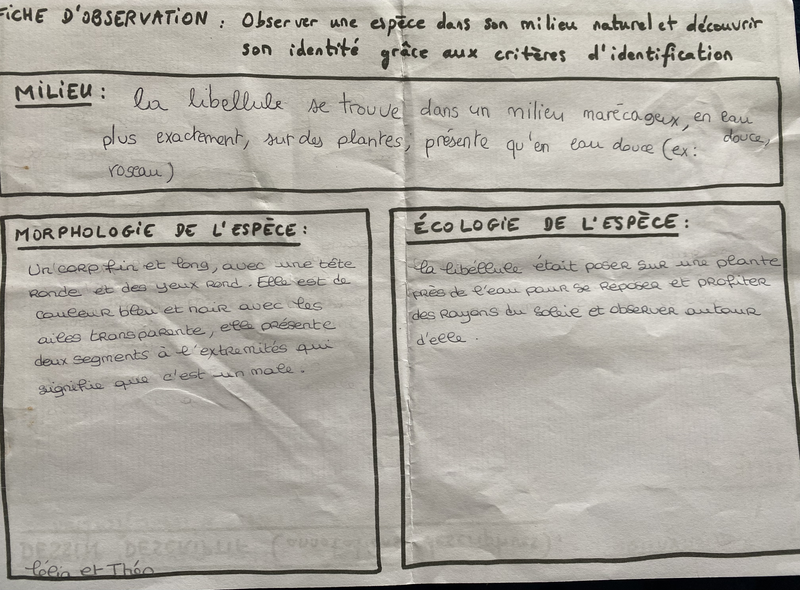 FICHE D'OBSERVATION : Observer une espèce dans son milieu naturel et découvrir
son identité grâce aux critères d'identification
MILIEU : la libellule se trouve dans un milieu marécageux, en eau douce,
plus exactement, sur des plantes, présente qu'en eau douce (ex:
roseau)
MORPHOLOGIE DE L'ESPÈCE :
Un corp fin et long, avec une tête
Ronde et des yeux Rond. Elle est de
couleur bleu et noir avec les
ailes transparente, elle présente
deux segments à l'extremités qui
signifie que c'est un male.
ÉCOLOGIE DE L'ESPÈCE :
la libéllule était poser sur une plante
près de l'eau pour se reposer et profiter
des Rayons du Soleie et observer autour
d'elle.
DESSIN DESCRIPTIF (annotations descriptives)
et Théo